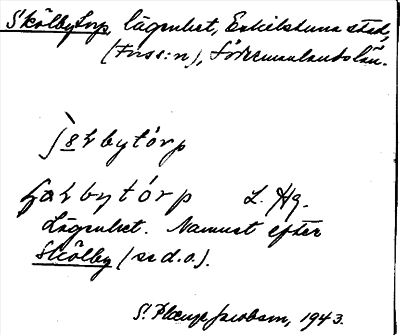 Skölbytorp, lägenhet, Eskilstuna stad,
(Forss:n), Södermanlands län.
bytórp
bytórp L. Hg.
Lägenhet. Namnet efter
Skölby (se d.o.).
S. Plænge Jacobson, 1943.